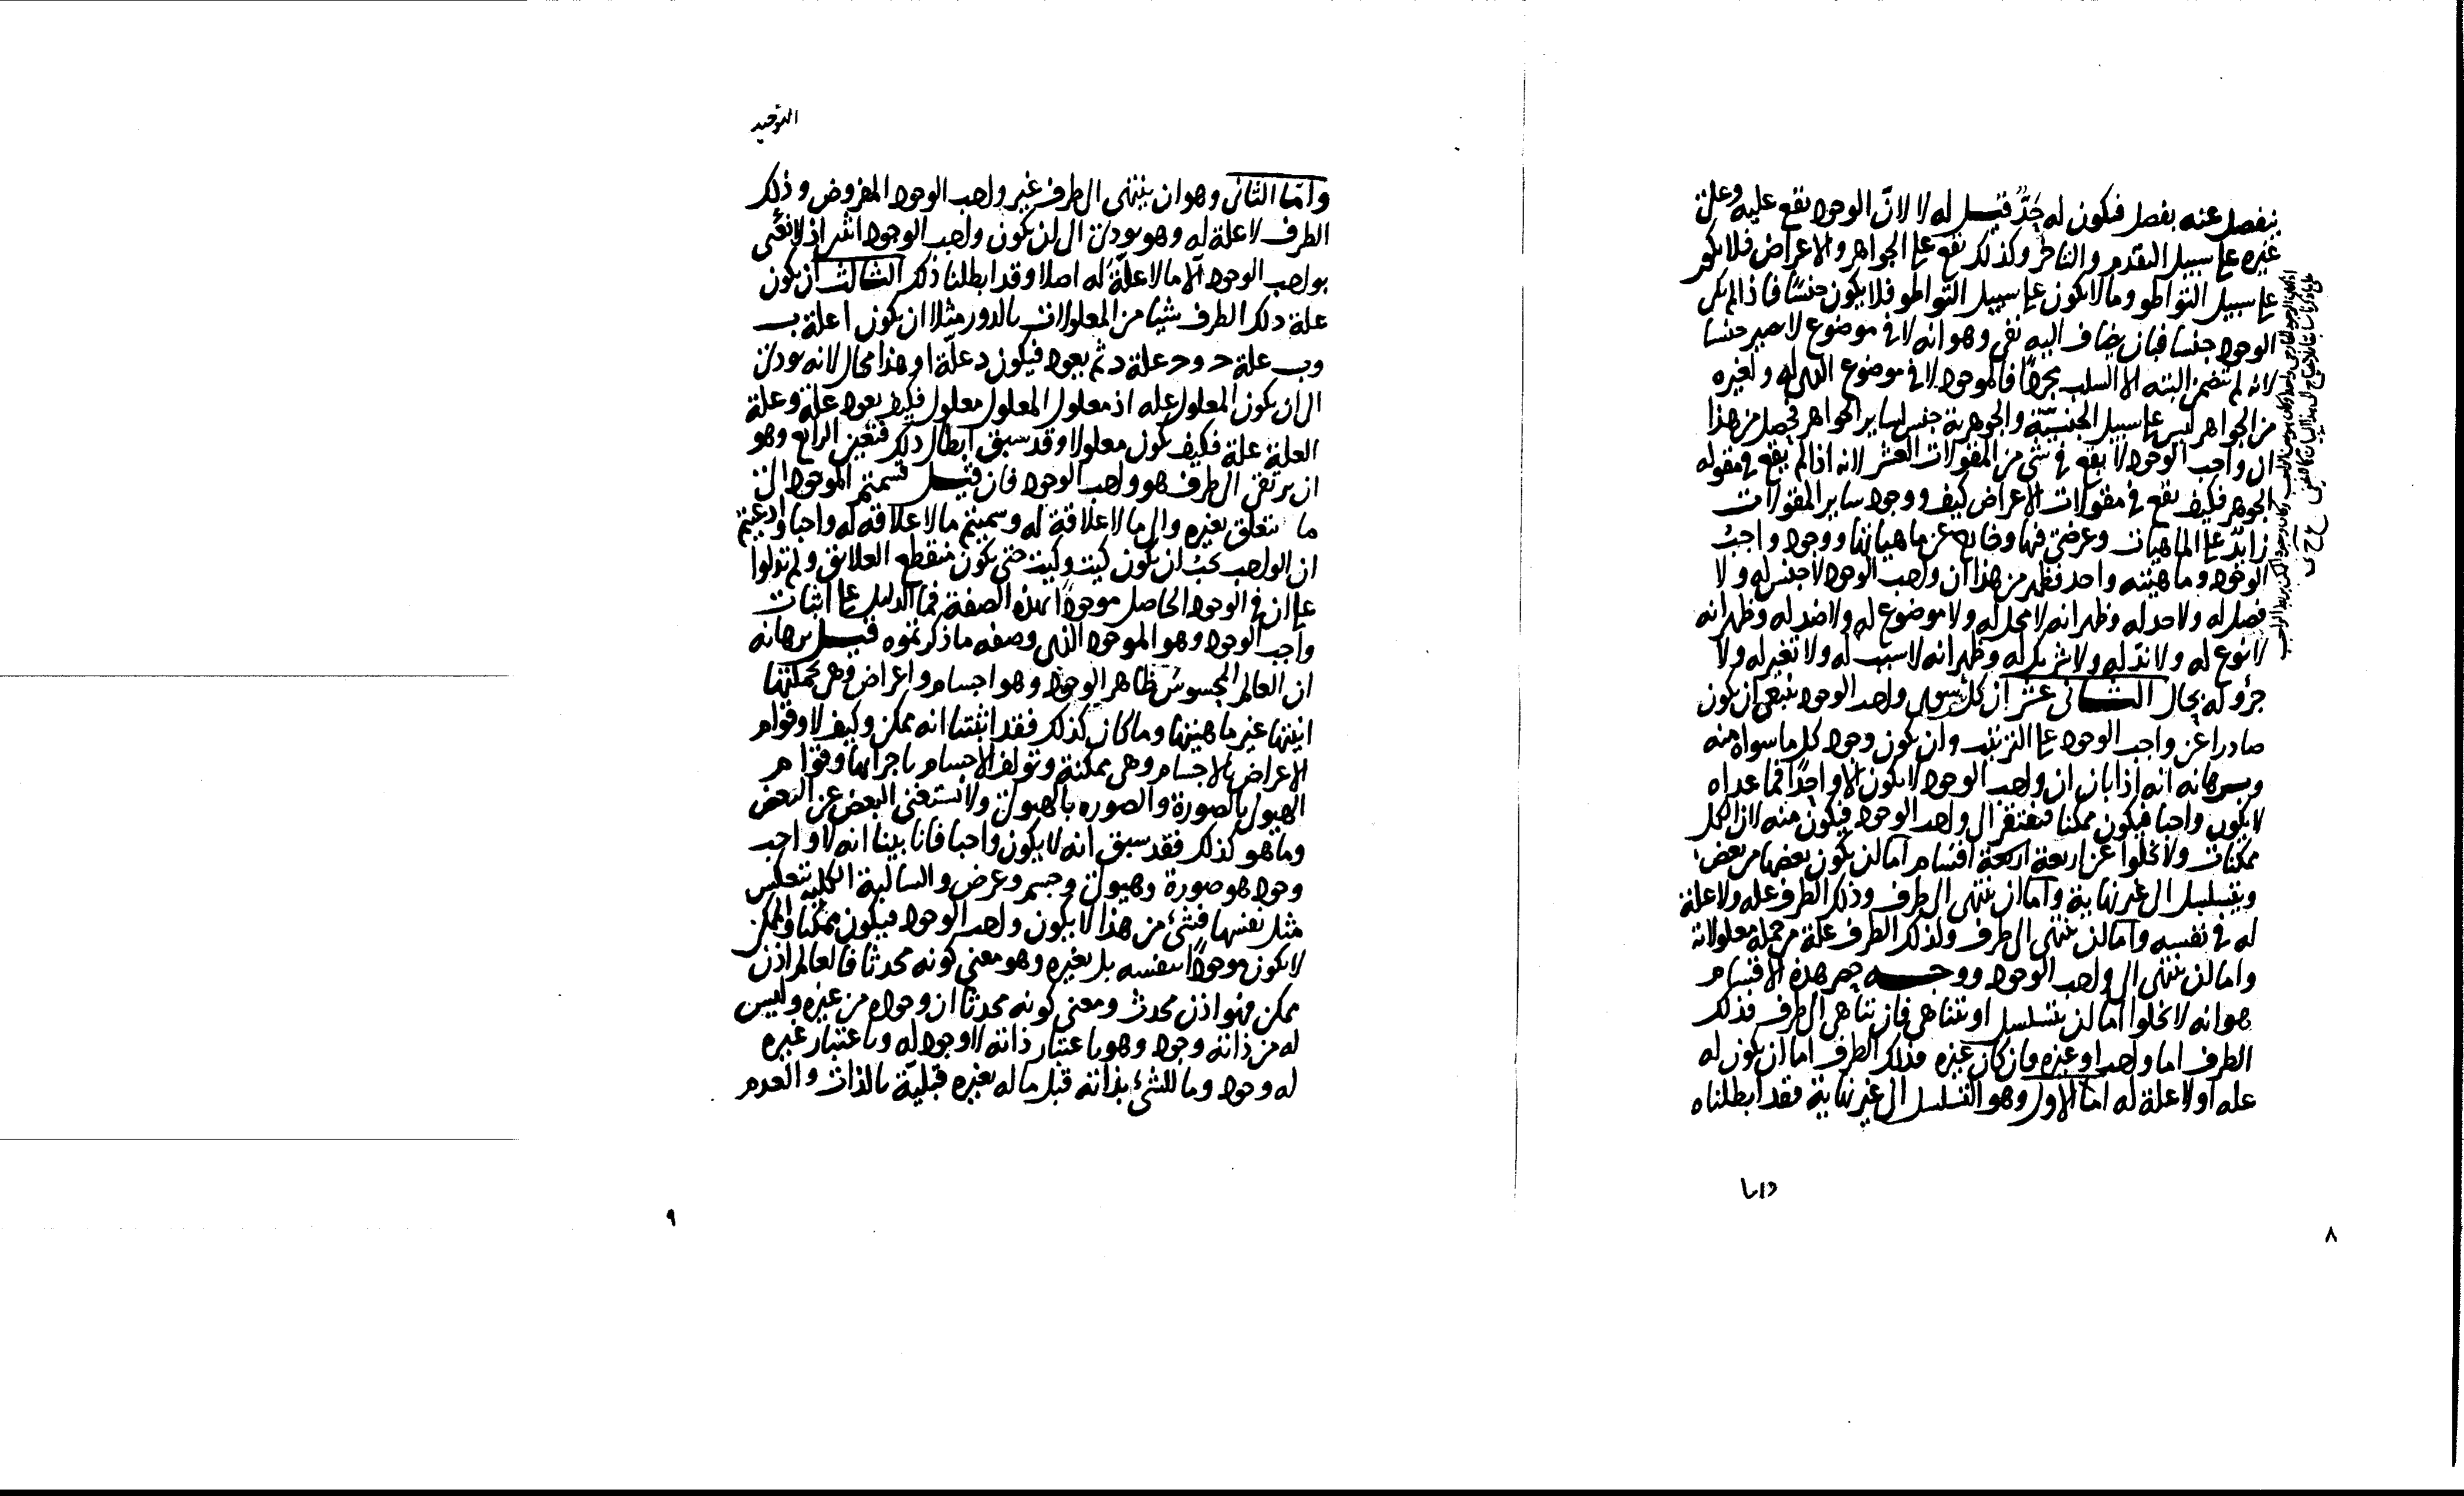 ينفصل عنه بفصل فيكون له حدّ قيل له لا لانّ الوجود يقع عليه وعلى
غيره على سبيل التقدم والتاخر وكذلك يقع على الجواهر والاعراض فلا يكون
على سبيل التواطو وما لا يكون على سبيل التواطو فلا يكون جنسًا فاذا لم يكن
الوجود جنسا فبان يضاف اليه نفي وهو انه لا في موضوع لا يصير جنسا
لانه لم يتضمن البته الا السلب مجردًا فالموجود لا في موضوع الذي له ولغيره
من الجواهر ليس على سبيل الجنسيّة والجوهرية جنس لساير الجواهر فحصل من هذا
ان واجب الوجود لا يقع في شي من المقولات العشر لانه اذا لم يقع في مقوله
الجوهر فكيف يقع في مقولات الاعراض كيف ووجود ساير المقولات
زايد على الماهيات وعرضي فيها وخارج عن ماهياتها ووجود واجب
الوجود وماهيته واحد فظهر من هذا ان واجب الوجود لا جنس له ولا
فصل له ولا حد له وظهر انه لا محل له ولا موضوع له ولا ضد له وظهر انه
لا نوع له ولا ندّ له ولا شريك له وظهر انه لا سبب له ولا تغير له ولا
جزو له بحال الثانى عشر ان كل سوى واجب الوجود ينبغي ان يكون
صادرا عن واجب الوجود على الترتيب وان يكون وجود كل ما سواه منه
وبرهانه انه اذا بان ان واجب الوجود لا يكون الا واحدًا فما عداه
لا يكون واجبا فيكون ممكنا فيفتقر الى واجب الوجود فيكون منه لان الكل
ممكنات ولا يخلوا عن اربعة اربعة اقسام اما ان يكون بعضها من بعض
ويتسلسل الى غير نهاية واما ان ينتهى الى طرف وذلك الطرف عله ولا علة
له في نفسه واما ان ينتهى الى طرف ولذلك الطرف علة من جملة معلولاته
واما ان ينتهى الى واجب الوجود ووجه حصر هذه الاقسام
هو انه لا يخلوا اما ان يتسلسل او يتناهى فان تناهى الى طرف فذلك
الطرف اما واجب او غيره فان كان غيره فذلك الطرف اما ان يكون له
عله او لا علة له اما الاول وهو التسلسل الى غير نهاية فقد ابطلناه
٨
التوحيد
وامّا الثانى وهو ان ينتهى الى طرف غير واجب الوجود المفروض وذلك
الطرف لا علة له وهو يودى الى ان يكون واجب الوجود اثنين اذ لا نعنى
بواجب الوجود الّا ما لا علّة له اصلا وقد ابطلنا ذلك الثالث ان يكون
علة ذلك الطرف شيا من المعلولات بالدور مثلا ان يكون ا علة ب
وب علة ح وح علة د ثم يعود فيكون د علّة ا وهذا محال لانه يودى
الى ان يكون المعلول عله اذ معلول المعلول معلول فكيف يعود علة وعلة
العلة علة فكيف يكون معلولا وقد سبق ابطال ذلك فتعين الرابع وهو
ان يرتقى الى طرف هو واجب الوجود فان قيل قسمتم الموجود الى
ما يتعلق بغيره والى ما لا علاقة له وسميتم ما لا علاقة له واجبا وادعيتم
ان الواجب يجب ان يكون كيت وكيت حتى يكون منقطع العلايق ولم تدلوا
على ان في الوجود الحاصل موجودًا بهذه الصفة فما الدليل على اثبات
واجب الوجود وهو الموجود الذي وصفه ما ذكرتموه قيل برهانه
ان العالم المحسوس ظاهر الوجود وهو اجسام واعراض وهى بجملتها
انيتها غير ماهيتها وما كان كذلك فقد اثبتنا انه ممكن وكيف لا وقوام
الاعراض بالاجسام وهى ممكنة وتولف الاجسام باجزائها وقوام
الهيولى بالصورة والصوره بالهيولى ولا يستغنى البعض عن البعض
وما هو كذلك فقد سبق انه لا يكون واجبا فانا بينا انه لا واجب
وجود هو صورة وهيولى وجسم وعرض والسالبة الكليه تنعكس
مثل نفسها فشئ من هذا لا يكون واجب الوجود فيكون ممكنا والممكن
لا يكون موجودًا بنفسه بل بغيره وهو معنى كونه محدثا فالعالم اذن
ممكن فهو اذن محدث ومعنى كونه محدثا ان وجوده من غيره وليس
له من ذاته وجود وهو باعتبار ذاته لا وجود له وباعتبار غيره
له وجود وما للشئ بذاته قبل ما له بغيره قبليّة بالذات والعدم
٩